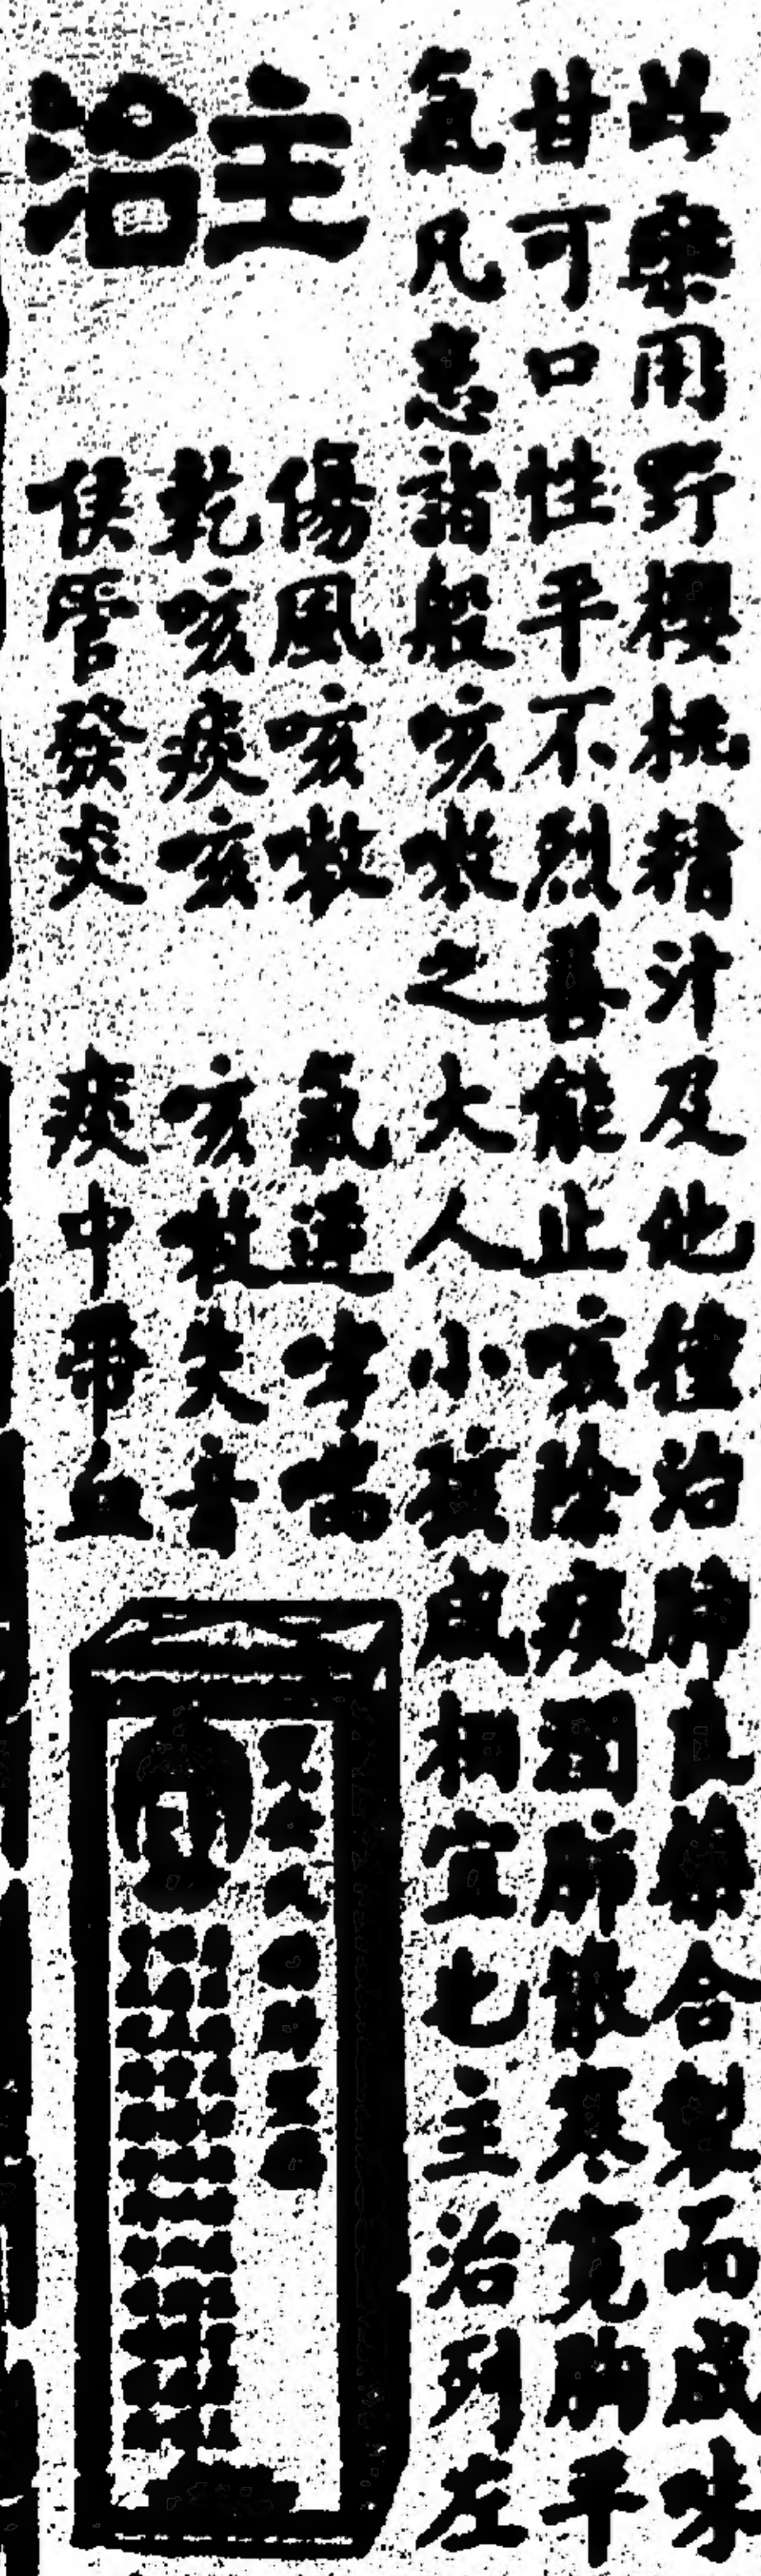 此藥用野櫻桃精汁及他種治肺良藥合製而成味
甘可口性平不烈善能止咳除痰潤肺散寒寬胸平
氣凡患諸般咳嗽之大人小孩咸相宜也主治列左
主治
傷風咳嗽
氣逆哮喘
乾咳痰咳
咳嗽失音
喉管發炎
痰中帶血